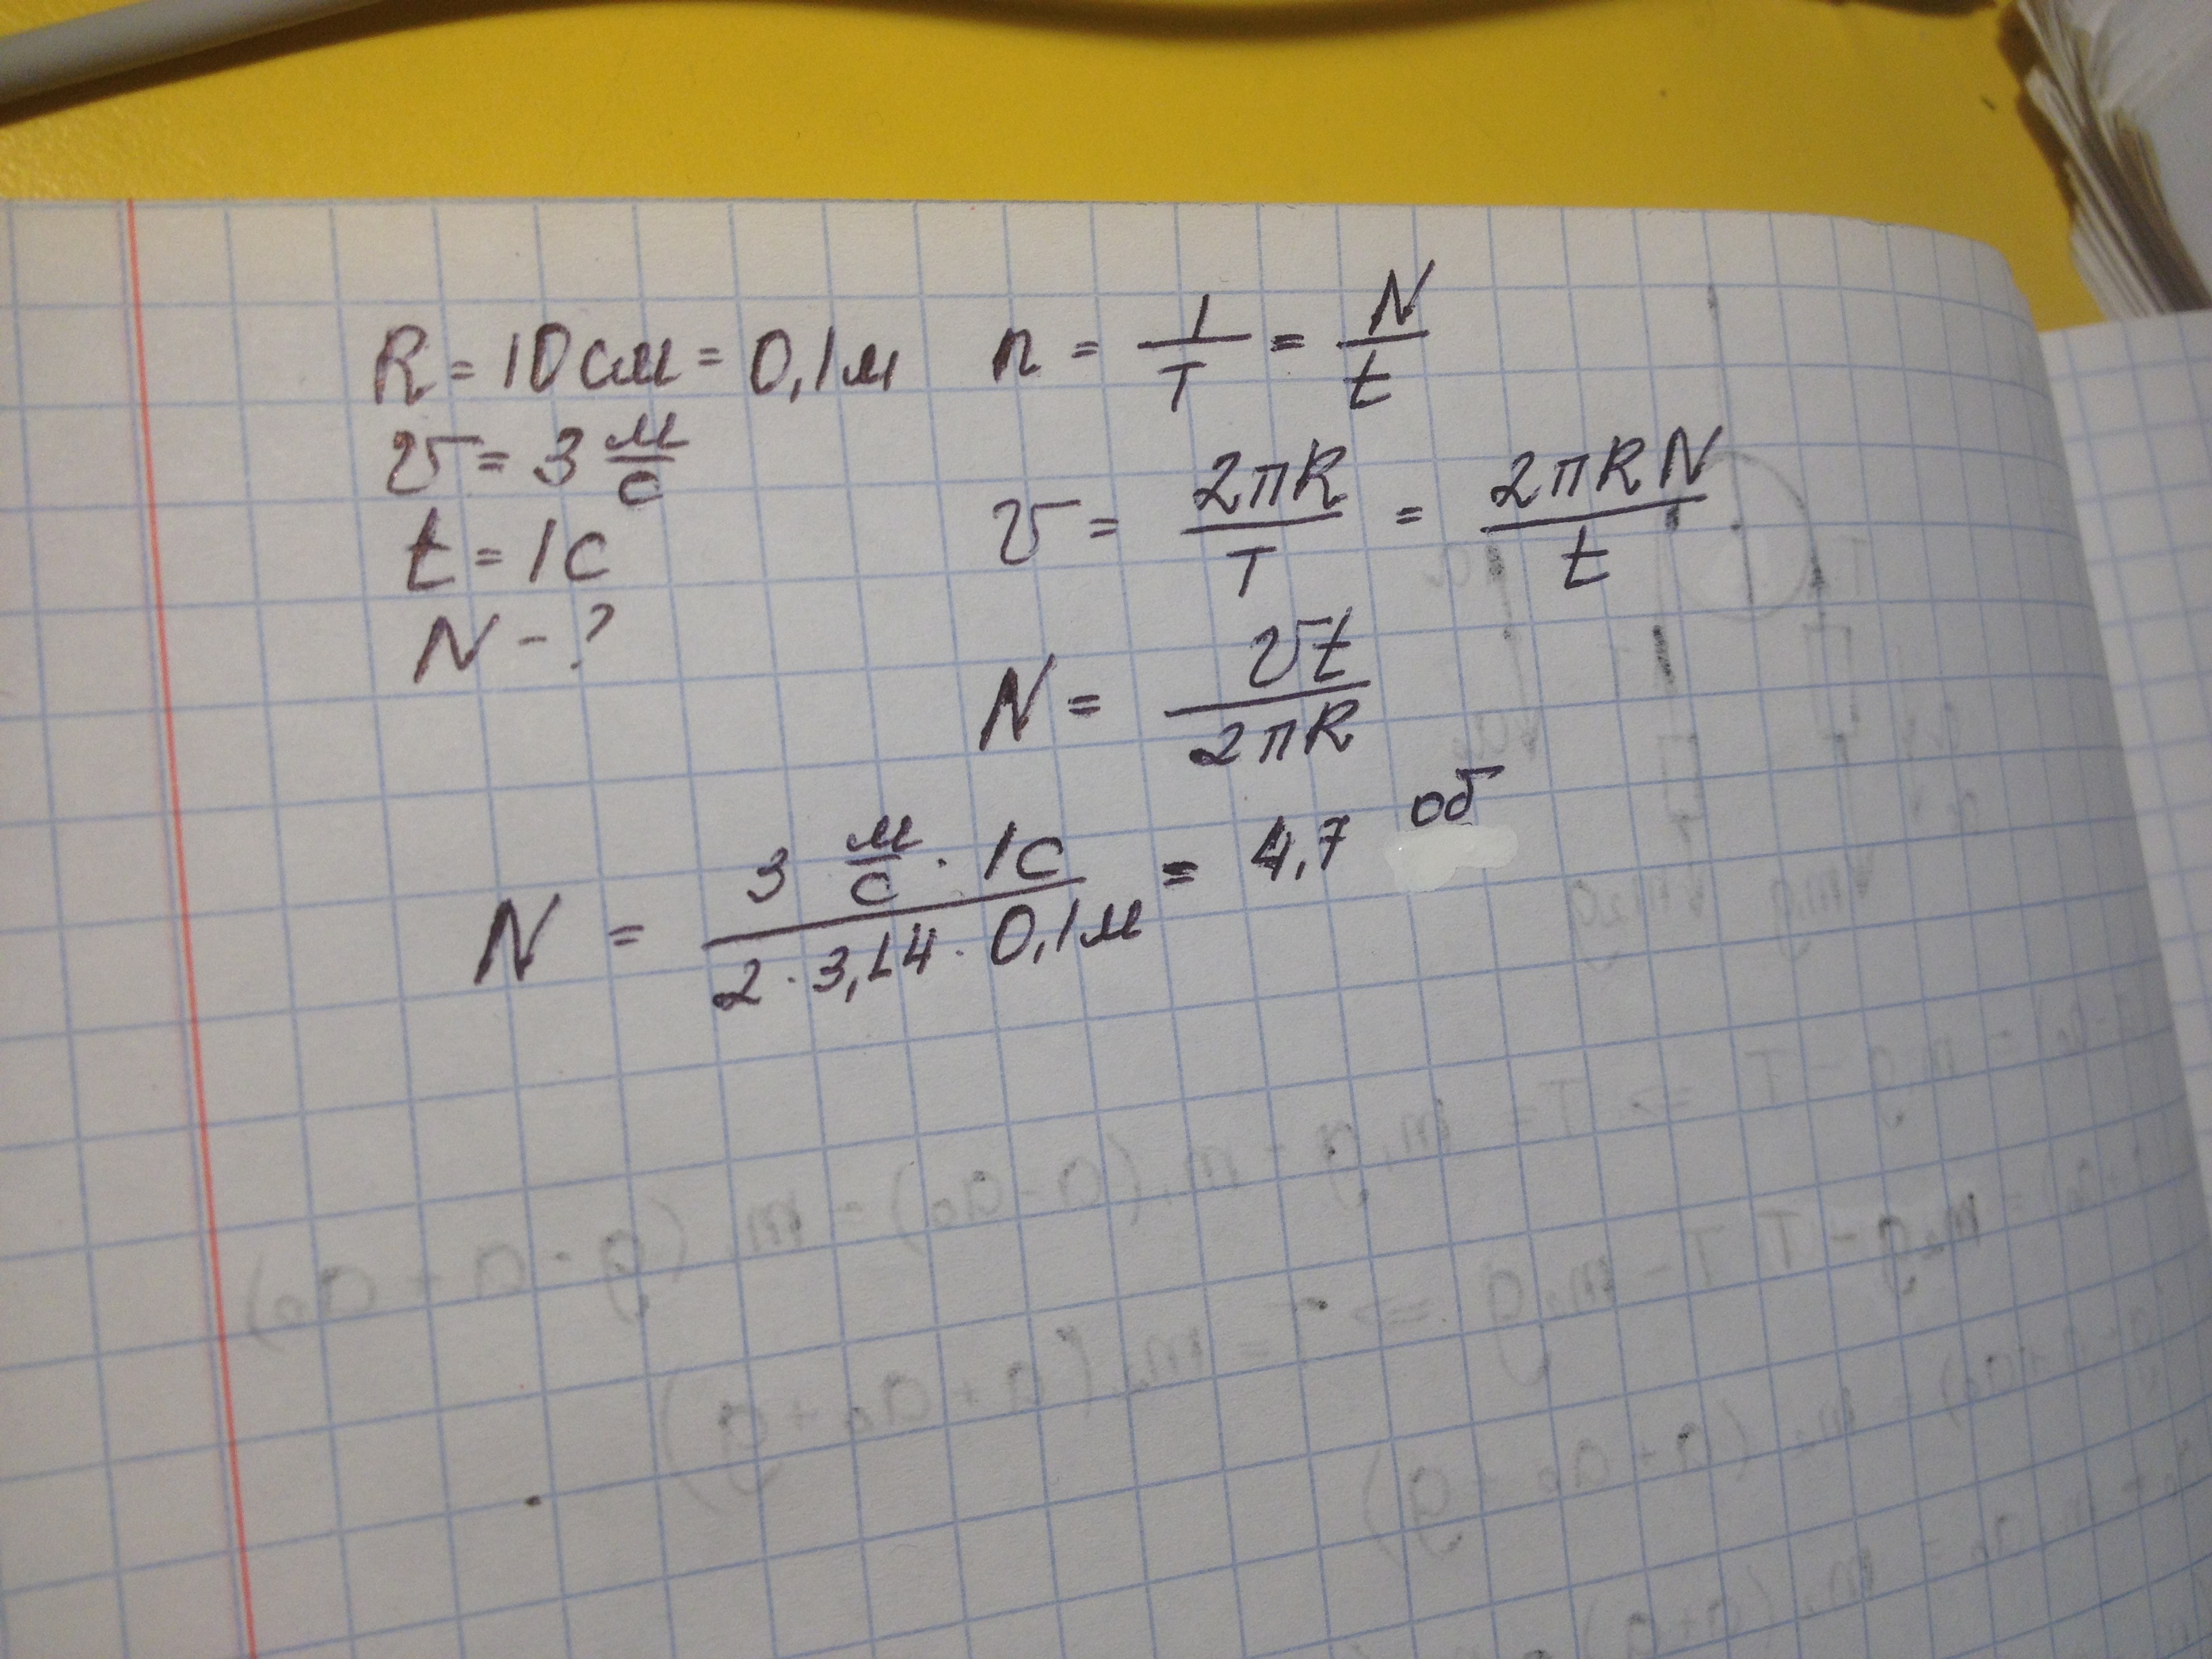 R = 10 см = 0,1 м
υ = 3 м/с
t = 1 с
N - ?
n = 1/T = N/t
υ = 2πR/T = 2πRN/t
N = υt/2πR
N = 3 м/с · 1с / 2 · 3,14 · 0,1 м = 4,7 об